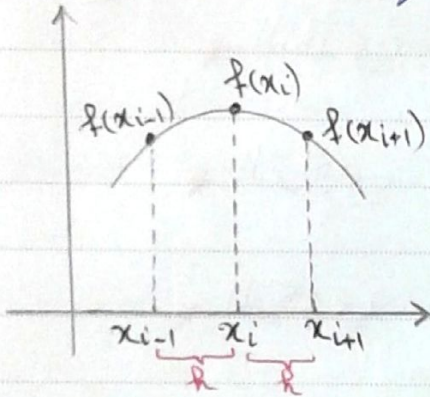 f(xᵢ)
f(xᵢ₋₁)
f(xᵢ₊₁)
xᵢ₋₁ xᵢ xᵢ₊₁
h h